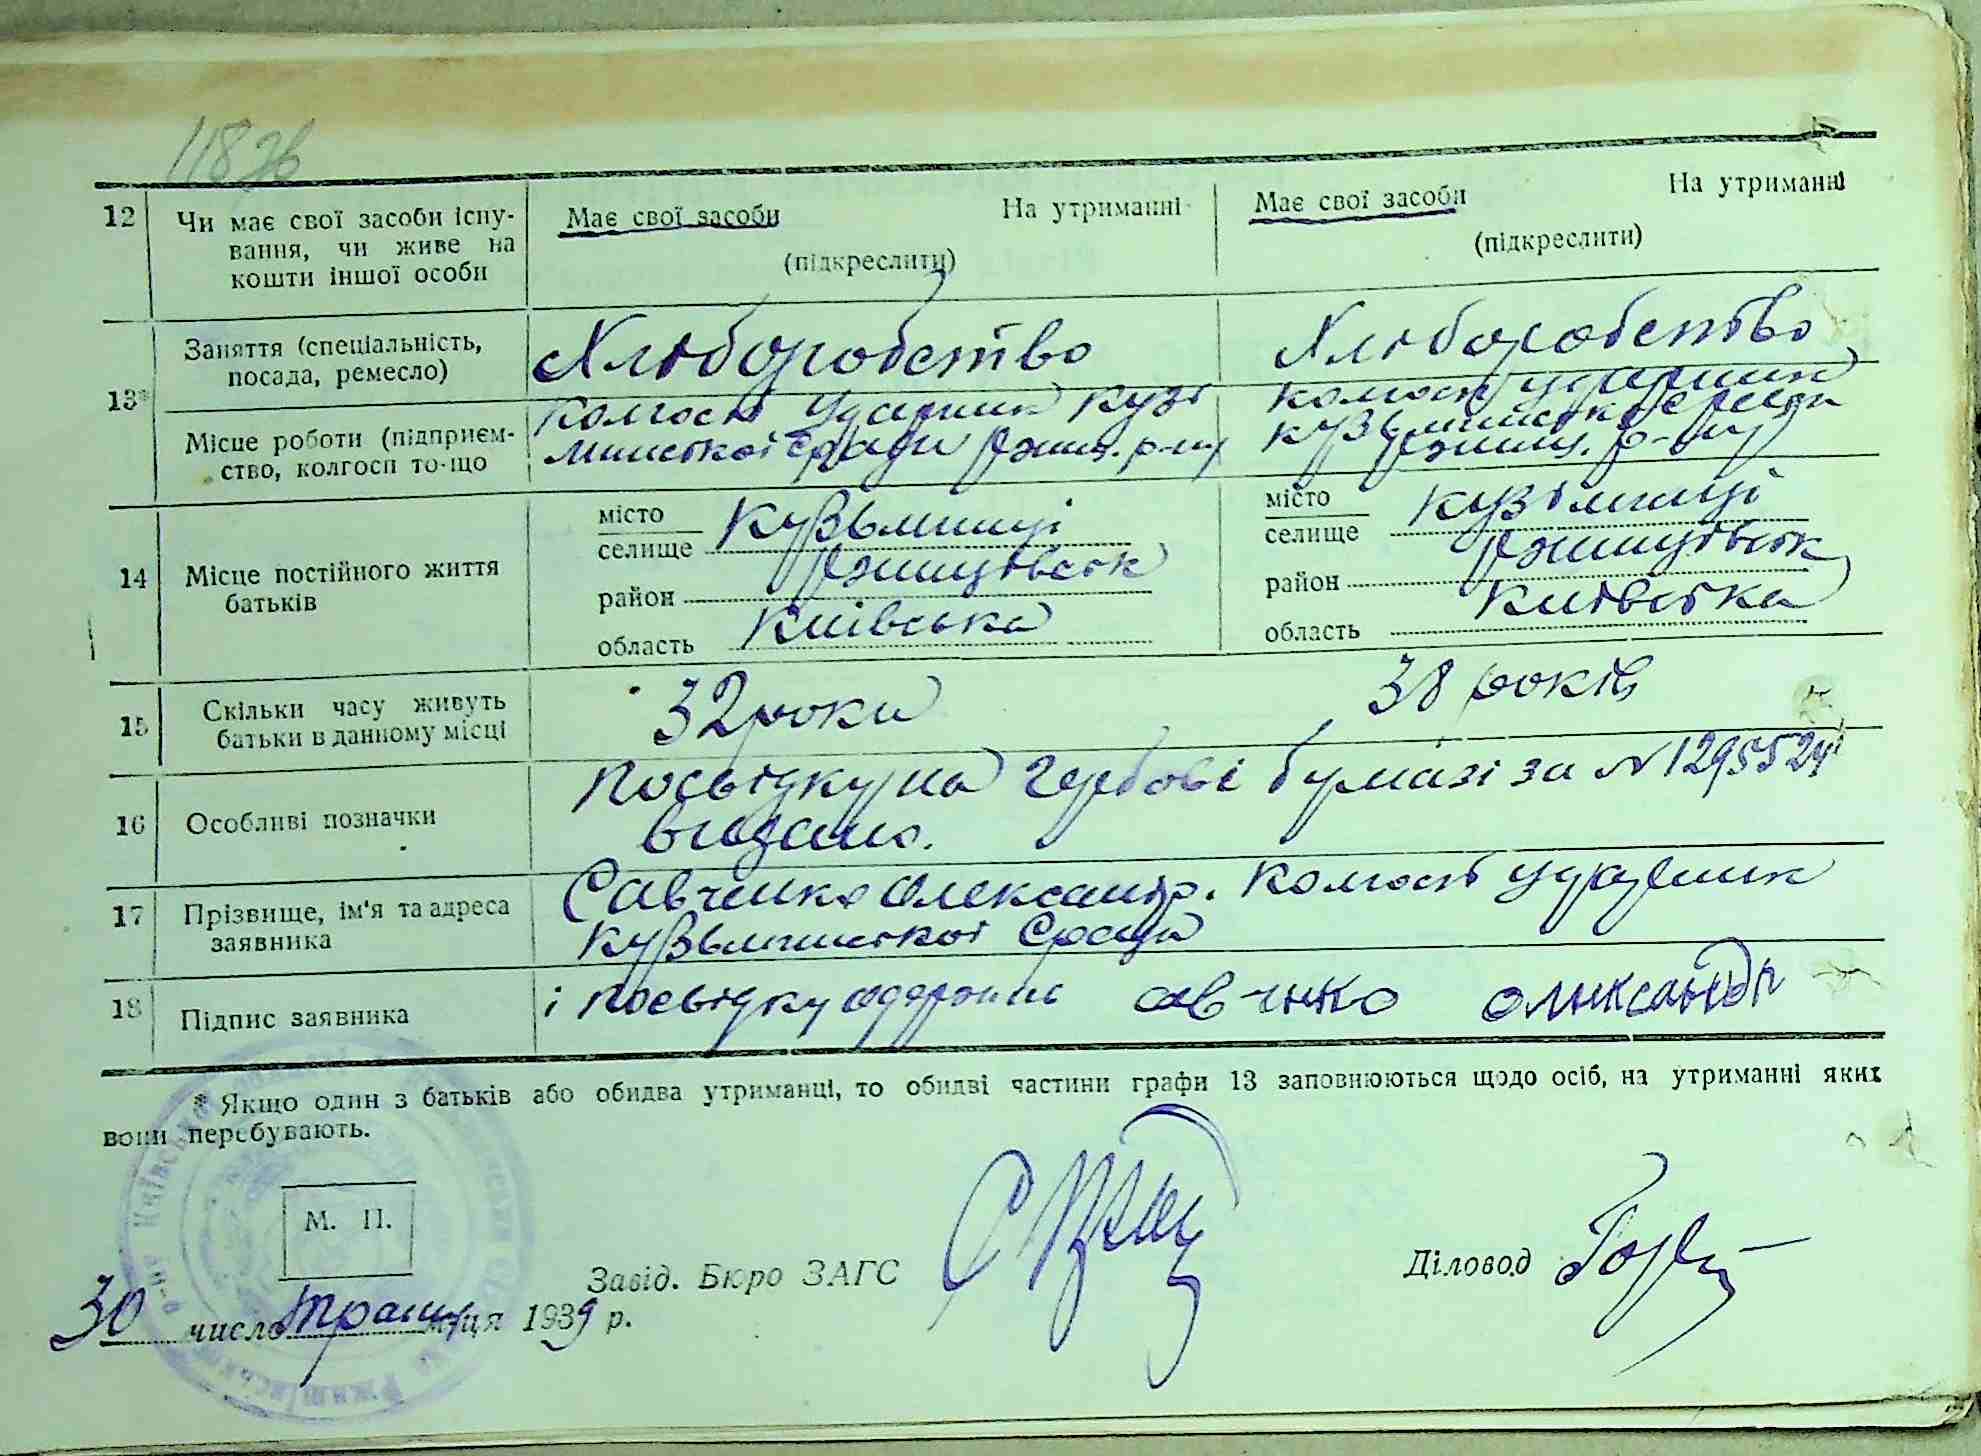 118 зв
12 Чи має свої засоби існу- Має свої засоби На утриманні Має свої засоби На утриманні
вання, чи живе на (підкреслити) (підкреслити)
кошти іншої особи
13* Заняття (спеціальність, Хліборобство Хліборобство
посада, ремесло)
Місце роботи (підприєм- колгосп ударник кузь колгосп ударник
ство, колгосп то-що минської с/ради Ржищ. р-ну кузьминської с/ради
Ржищ. р-ну
14 Місце постійного життя місто Кузьминці місто Кузьминці
батьків селище селище
район Ржищівськ район Ржищівськ
область Київська область Київська
15 Скільки часу живуть 32 роки 38 років
батьки в данному місці
16 Особливі позначки Посвідку на гербові бумазі за № 1295524
видано.
17 Прізвище, ім'я та адреса Савченко Олександр. Колгосп ударник
заявника Кузьминської с/ради
18 Підпис заявника і посвідку одержив савчнко олнксандр
* Якщо один з батьків або обидва утриманці, то обидві частини графи 13 заповнюються щодо осіб, на утриманні яких
вони перебувають.
М. П.
Завід. Бюро ЗАГС Діловод
30 число травня м-ця 1939 р.